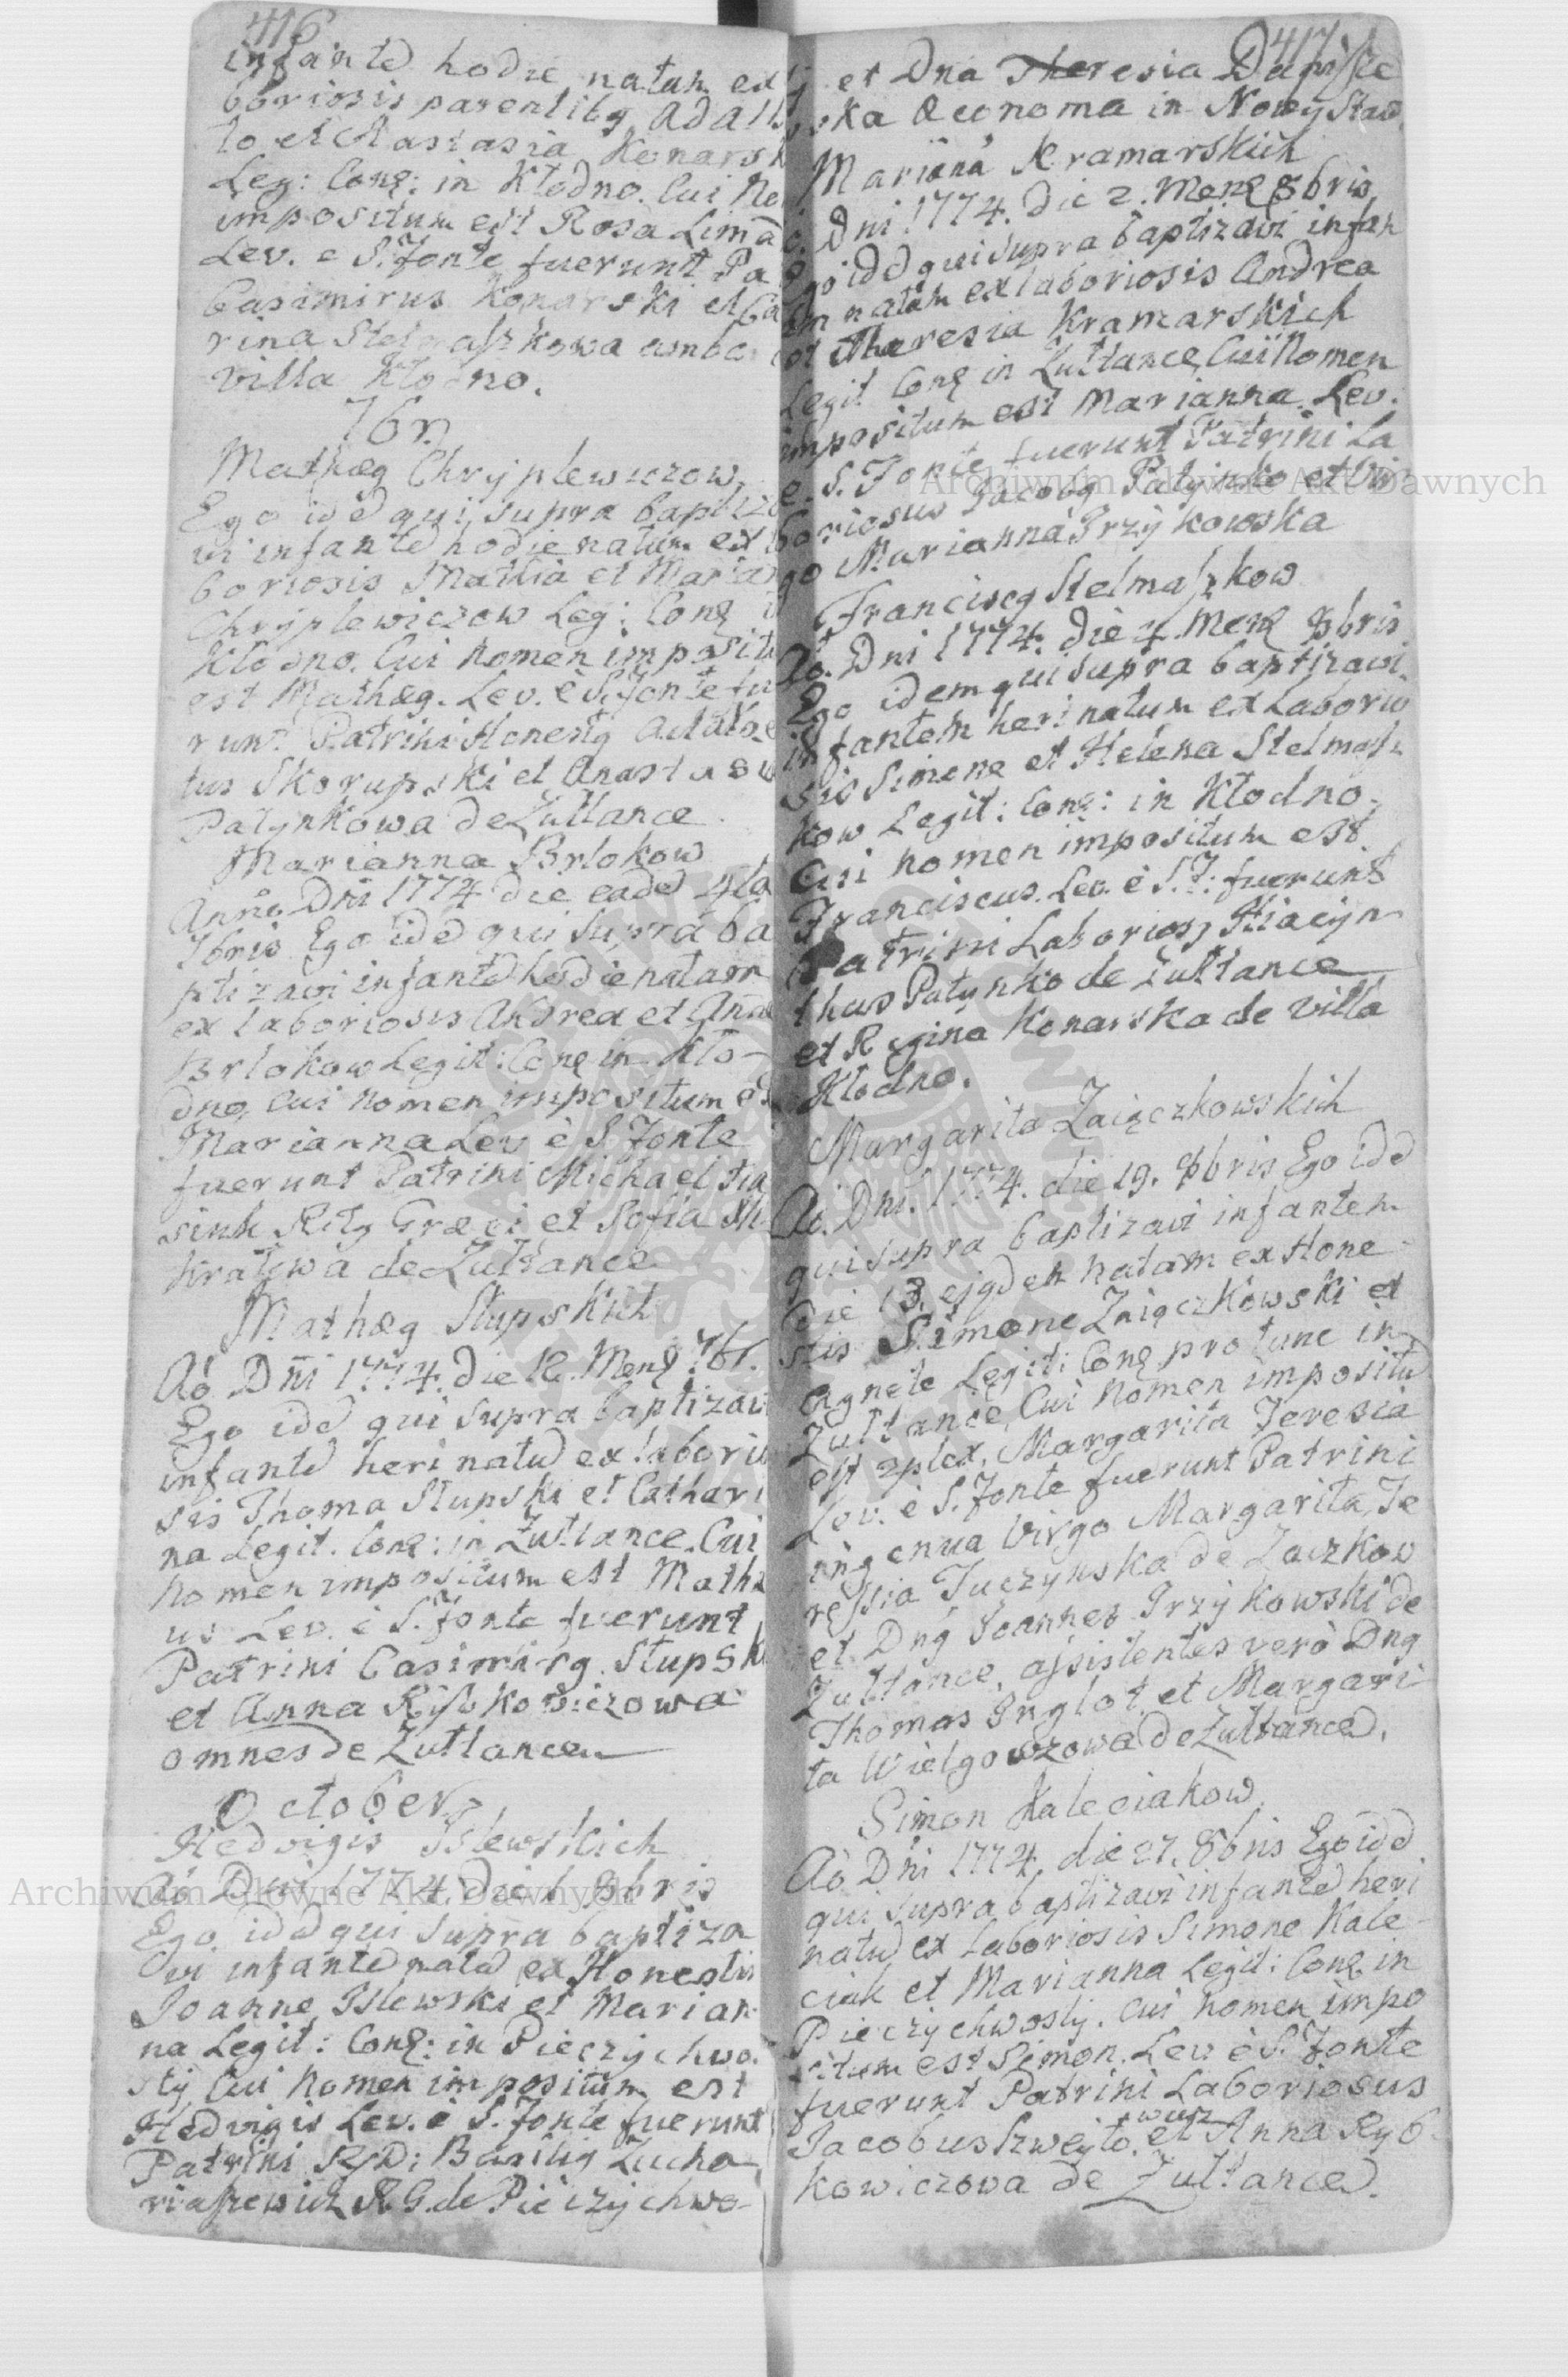 416
infante hodie natam ex
boriosis parentibg Adalb
to et Anastasia Konarsk
Leg: Conę: in Kłodno. Cui No
impositum est Rosa Limā
Lev. e S. Fonte fuerunt Pa
Casimirus Konarski et Ca
rina Stelmaszkowa ambo
villa Kłodno.
7br.
Mathæg Chryplewiczow
Ego idē qui supra baptiza
vi infantē hodie natum ex
boriosis Mathia et Marian
Chryplewiczow Leg: Conę
Kłodno. Cui Nomen imposit
est Mathæg. Lev. è S. Fonte fu
runt Patrini Honestg Adalbe
tus Skorupski et Anastasia
Patynkowa de Zułtance
Marianna Brlokow
Anno Dni 1774 die eadē
7bris Ego idē qui supra ba
ptizavi infantē hodie natam
ex laboriosis Andrea et Anna
Brlokow Legit: Conę in Kło-
dno, Cui Nomen impositum es
Marianna Lev è S. Fonte
fuerunt Patrini Michael
Ritg Græci et Sofia
de Zułtance
Mathæg Słupskich
Ao Dni 1774. die 12. Menę 7br.
Ego idē qui supra baptizavi
infantē heri natū ex laborio
sis Thoma Słupski et Cathari
na Legit. Conę: in Zułtance. Cui
Nomen impositum est Mathæ
us Lev. è S. Fonte fuerunt
Patrini Casimirg Słupsk
et Anna Rybkowiczowa
omnes de Zułtance
October
Hedvigis Islewskich
Ao Dni 1774 die 1 8bris
Ego idē qui supra baptiza
vi infantē natā ex Honestis
Joanne Islewski et Marian
na Legit: Conę: in Pieczychwo
sty Cui Nomen impositum est
Hedvigis Lev. è S. Fonte fuerunt
Patrini RD: Basilig Zucho
R. G. de Pieczychwo-
417
et Dna Theresia
ska Œconoma in Nowy Staw
Marianna Kramarskich
Dni 1774. die 2. Menę 8bris
Ego idē qui supra baptizavi infan
tem natam ex laboriosis Andrea
et Theresia Kramarskich
Legit Conę in Zułtance, Cui Nomen
impositum est Marianna. Lev.
e S. Fonte fuerunt Patrini La
boriosus Jacobg Patynko et Vir
go Marianna Przykowska
Franciscg Stelmaszkow
Ao. Dni 1774. die 4. Menę 8bris
Ego idem qui supra baptizavi
infantem heri natum ex Laborio
sis Simone et Helena Stelmasz
kow Legit: Conę: in Kłodno.
Cui nomen impositum est
Franciscus. Lev. è S. F: fuerunt
Patrini Labories Hiacyn
thus Patynko de Zułtance
et Regina Konarska de Villa
Kłodno.
Margarita Zaięczkowskich
Ao. Dni. 1774. die 19. 8bris Ego idē
qui supra baptizavi infantem
die 13. ejgdem natam ex Hone
stis Simone Zaięczkowski et
Agnete Legiti Conę pro tunc in
Zułtance, Cui Nomen impositū
est 2plex, Margarita Teresia
Lev. è S. Fonte fuerunt Patrini
ingenua Virgo Margarita Te
ressia Tuczynska de Zaczkow
et Dng Joannes Przykowski de
Zułtance, assistentes verò Dng
Thomas Inglot et Margari
ta Wielgoszowa de Zułtance.
Simon Kaleciakow
Ao Dni 1774, die 27. 8bris Ego idē
qui supra baptizavi infantē heri
natū ex Laboriosis Simone Kale
ciak et Marianna Legit: Conę in
Pieczychwosty. Cui Nomen impo
situm est Simon. Lev. è S. Fonte
fuerunt Patrini Laboriosus
Jacobus Szweyto et Anna Ryb
kowiczowa de Zułtance.
Archiwum Główne Akt Dawnych
Archiwum Główne Akt Dawnych